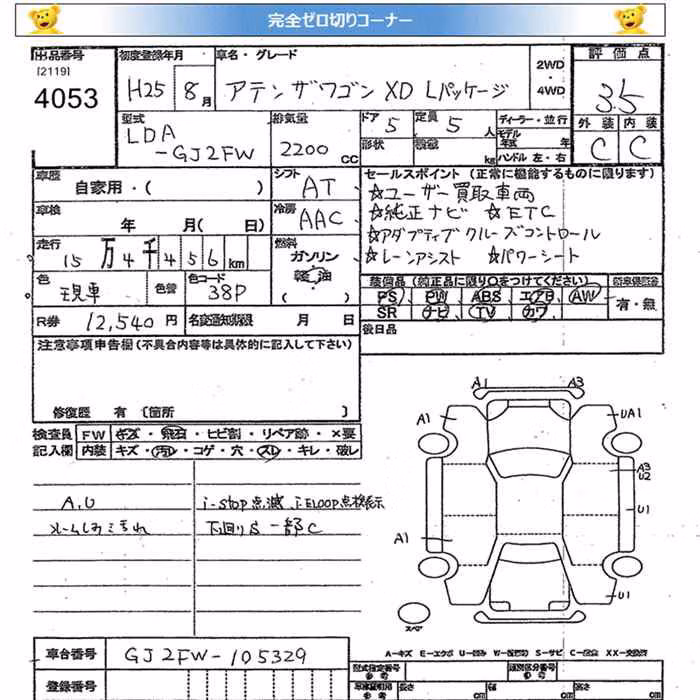 完全ゼロ切りコーナー
出品番号
[2119]
4053
初度登録年月
H25 8月
車名・グレード
アテンザワゴン XD Lパッケージ
2WD
・
4WD
評価点
3.5
外装 内装
C C
型式
LDA
-GJ2FW
排気量
2200 CC
ドア 5
定員 5 人
形状
積載 kg
ディーラー・並行
モデル
年式 年
ハンドル 左・右
車歴
自家用・( )
シフト AT
車検
年 月( 日)
冷房 AAC
走行
15万4千456km
燃料
ガソリン
軽油
( )
色
現車
色替
色コード
38P
R券 12,540円
名変通知期限 月 日
セールスポイント (正常に機能するものに限ります)
☆ユーザー買取車両
☆純正ナビ ☆ETC
☆アダプティブクルーズコントロール
☆レーンアシスト ☆パワーシート
装備品 (純正品に限り○をつけてください)
PS PW ABS エアB AW
SR ナビ TV カワ
有・無
後日品
注意事項申告欄 (不具合内容等は具体的に記入して下さい)
修復歴 有 [箇所 ]
検査員 FW キズ・飛石・ヒビ割・リペア跡・×要
記入欄 内装 キズ・汚レ・コゲ・穴・スレ・キレ・破レ
A.U
i-stop点滅, i-ELOOP点検表示
ルームしみこきれ
下廻りS 一部C
A1 A3
A1 UA1
A3
U2
U1
A1
U1
スペア
A-キズ E-エクボ U-凹み W-補修跡 S-サビ C-腐食 XX-交換済
車台番号 GJ2FW-105329
登録番号
型式指定番号
参考
類別区分番号
参考
長さ cm 幅 cm 高さ cm